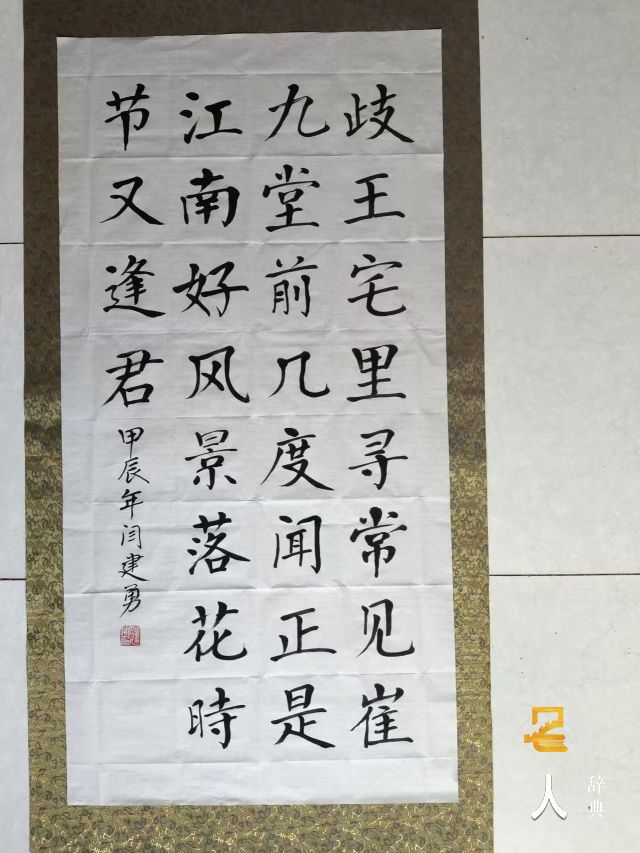 歧王宅里寻常见崔
九堂前几度闻正是
江南好风景落花時
节又逢君
甲辰年闫建勇
名人
辞典